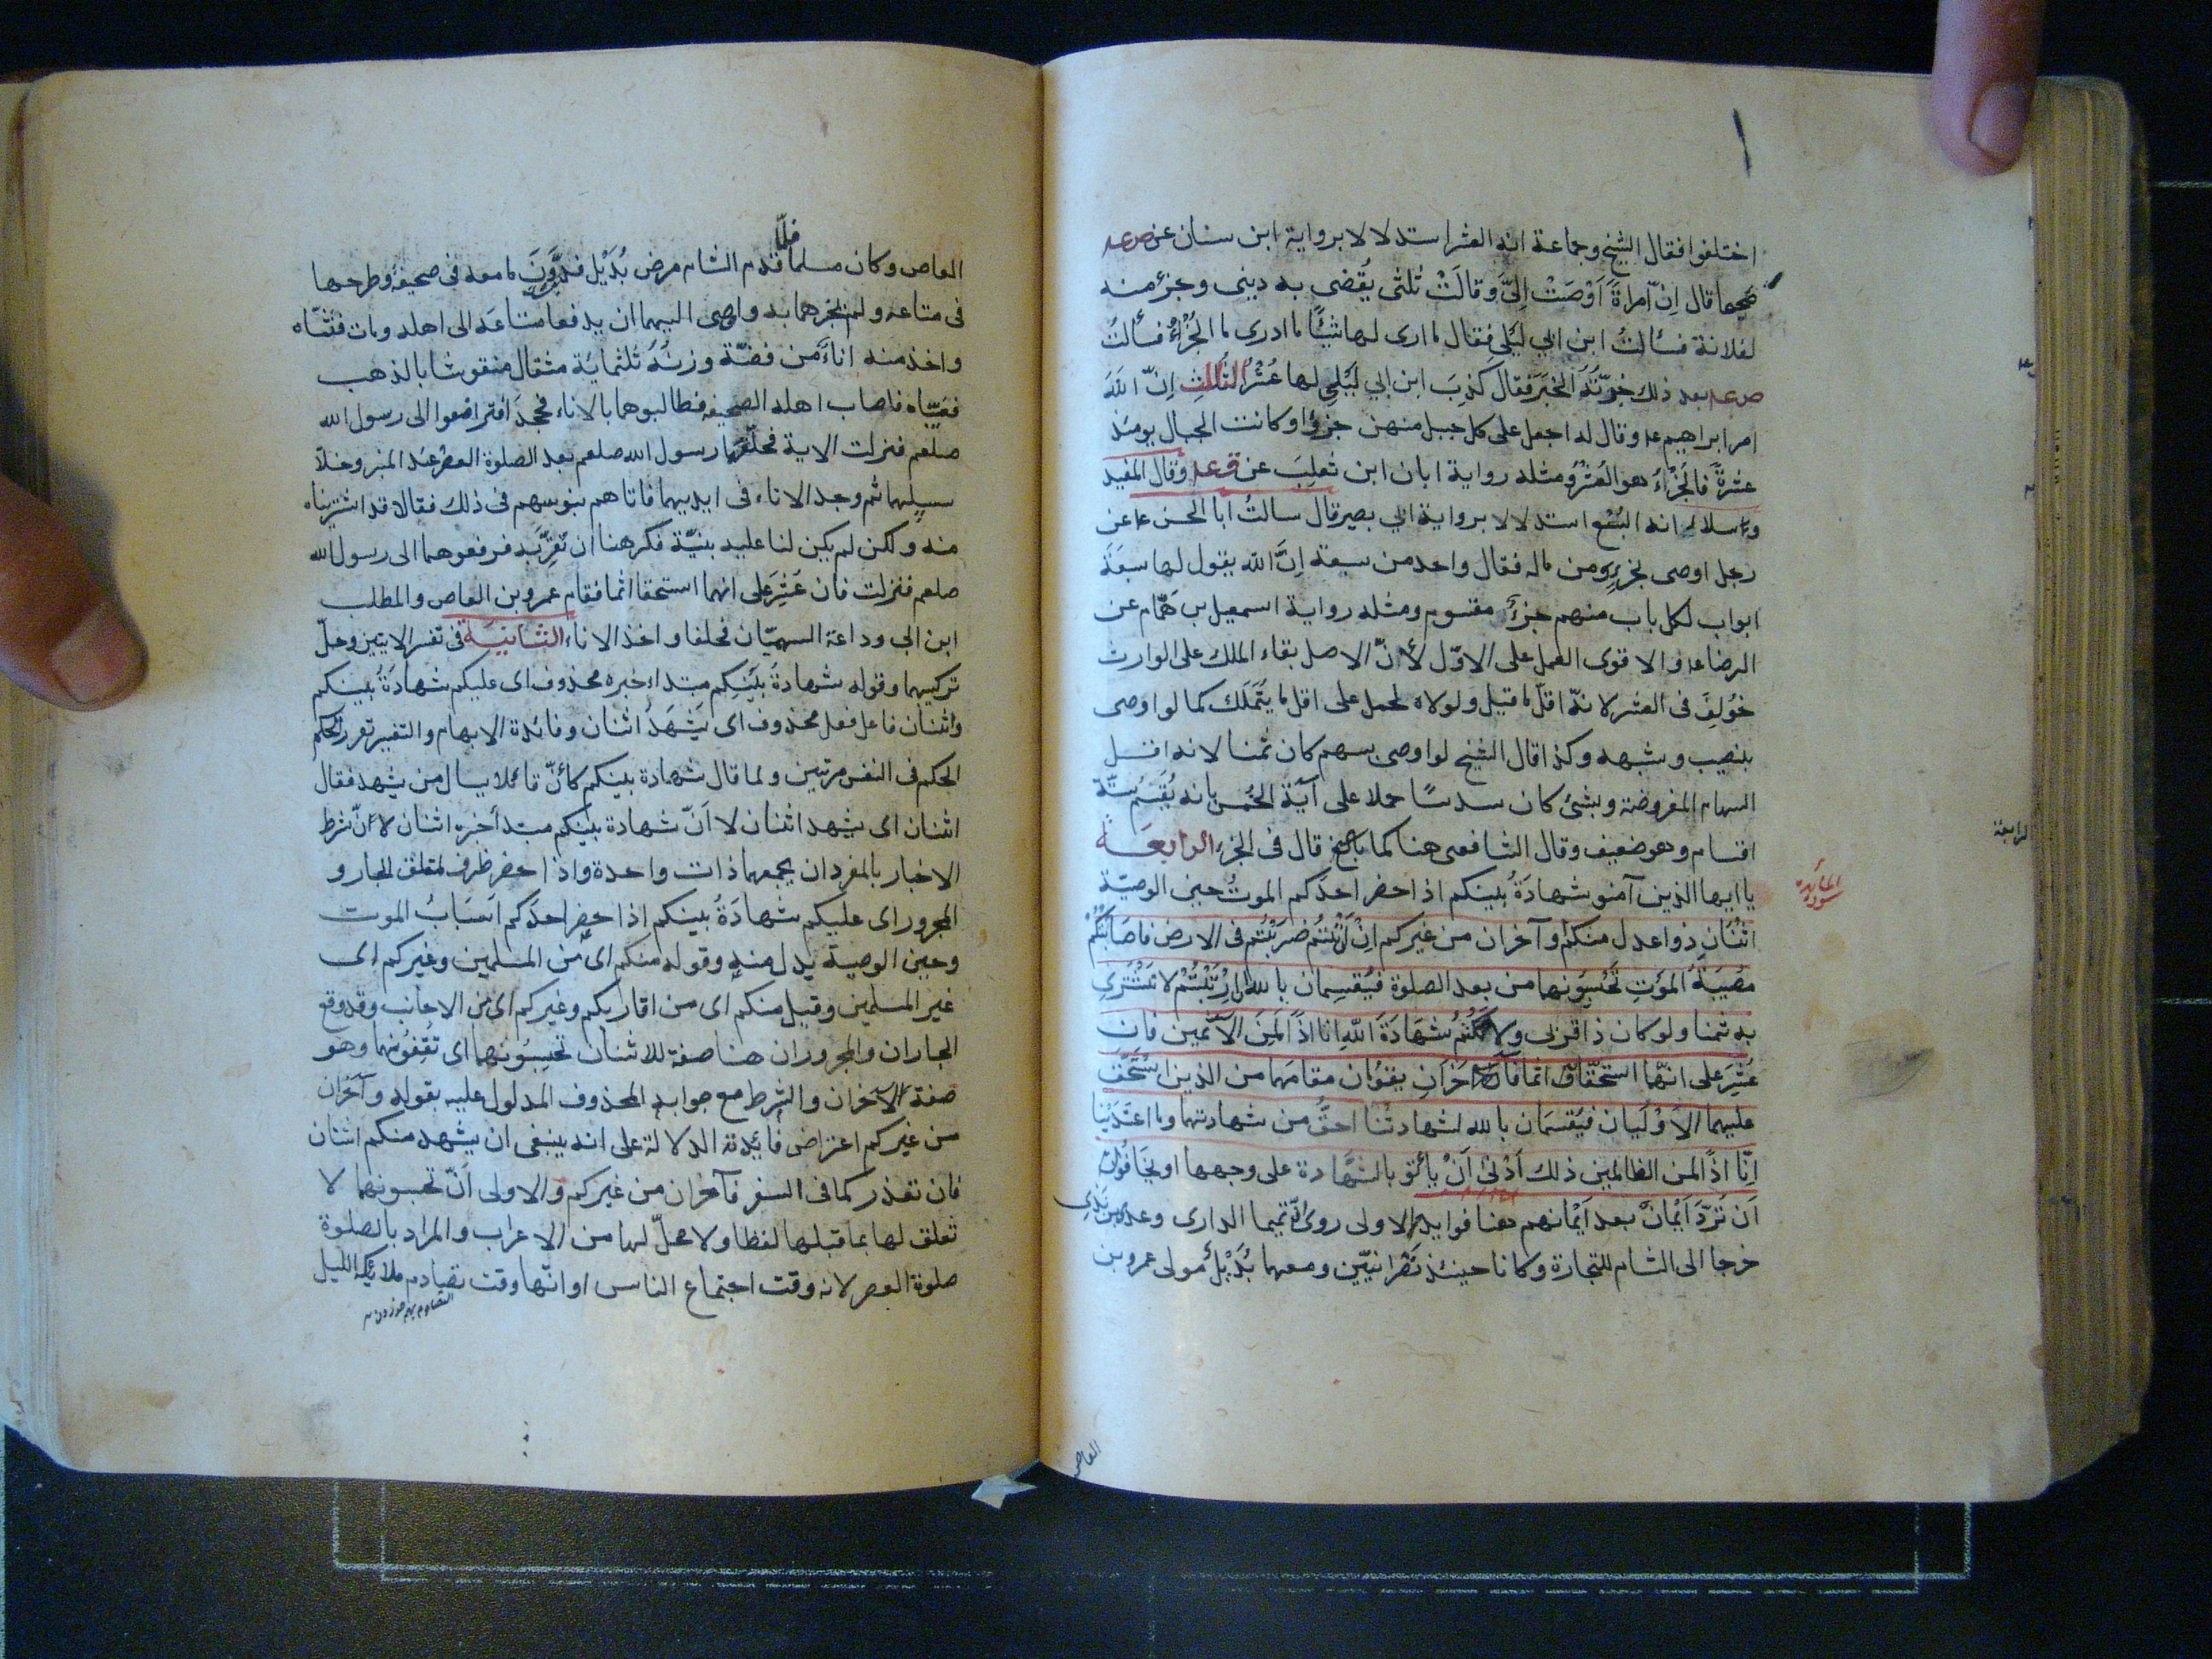 اختلفوا فقال الشيخ وجماعة انه العشر استدلالا برواية ابن سنان عن ص عه
صحيحا قال اِنّ امراةً اَوْصَتْ اِلىَّ وَقالَتْ ثلثى يُقضى به دينى وجزء منه
لفلانة فسألتُ ابن ابي لَيْلى فقال ما ارى لها شيئًا ما ادرى ما الجُزْءُ فسألتُ
ص عه بعد ذلك وخبّرتُهُ الخبَرَ فقال كَذِبَ ابن ابي لَيْلى لها عُشْرُ الثُّلثِ اِنّ اللهَ
امر ابراهيم عه وقال له اجعل على كل جبل منهن جزءًا وكانت الجبال يومئذ
عشرةً فالجُزْءُ هو العُشْرُ ومثله رواية ابان ابن تغلِبَ عن ق عه وقال المفيد
وسلار انه السُبْع استدلالا برواية ابي بصير قال سالتُ ابا الحسن عه عن
رجل اوصى بجزءٍ من ماله فقال واحد من سبعة اِنَّ الله يقول لها سبعَةُ
ابواب لكل باب منهم جزءٌ مقسوم ومثله رواية اسمعيل بن همّام عن
الرضا عه والاقوى العمل على الاوّل لأنّ الاصل بقاء الملك على الوارث
خُولِفَ فى العشر لانه اقلّ ما قيل ولولاه لحمل على اقل ما يُتَمَلَك كما لو اوصى
بنصيب وشبهه وكذا قال الشيخ لو اوصى بسهم كان ثمنا لانه اقل
السهام المفروضة وبشئ كان سدسًا حملا على آيَة الخُمس بانه يُقسَمُ ستّة
اقسام وهو ضعيف وقال الشافعى هنا كما قال فى الجزء الرابعَة
يا ايها الذين آمنو شهادَةُ بينكم اذا حضر احدَكم الموتُ حين الوصيّة
اثْنَانِ ذوا عدل منكم وآخران من غيركم اِنْ اَنْتُمْ ضَرَبْتُم فى الارض فاصَابَتْكُمْ
مُصيبَةُ المَوْتِ تَحْبِسُونهما من بعد الصلوة فيُقسِمان بالله اِنِ ارْتَبْتُمْ لا نَشْتَرِى
به ثمنا ولو كان ذا قربى ولا نكْتُمُ شهَادَةَ اللهِ انا اذًا لَمِنَ الآثمين فان
عُثِرَ على انهما استحقّا اثما فآخرَانِ يقومان مقامَهما من الذين استَحَقّ
عليهما الاَوْلَيان فيُقسمَان بالله لشهادتُنا احقُّ من شهادتهما وما اعتَدَيْنا
اِنّا اذًا لمن الظالمين ذلك اَدْنىٰ اَنْ يأتو بالشّهادة على وجهها او يخَافُوا
اَن تُرَدّ اَيْمانٌ بعد اَيْمانهم هنا فوايد الاولى روى اَنّ تميما الدارى وعدى بن بَدِى
خرجا الى الشام للتجارة وكانا حينئذ نَصْرانيّين ومعهما بُدَيْلٌ مولى عمرو بن
سورة المائدة
الرابعة
العاص
العاص وكان مسلما فلمّا قدم الشام مرض بُدَيْل فدَوَّنَ ما معه فى صحيفة وطرحها
فى متاعه ولم يخبرهما به واوصى اليهما ان يدفعا متاعَه الى اهله ومات ففتّشاه
واخذ منه اناءً من فضّة وزنُهُ ثلثمائة مثقال منقوشا بالذهب
فغيّباه فاصاب اهله الصحيفه فطالبوهما بالاناء فجحدَا فترافعوا الى رسول الله
صلعم فنزلت الاية فحلّفهما رسول الله صلعم بعد الصلوة العصر عند المنبر وخلاّ
سبيلهما ثم وجد الاناء فى ايديهما فاتاهم بنو سهم فى ذلك فقالا قد اشتريناه
منه ولكن لم يكن لنا عليه بيّنة فكرهنا ان نُقِرّ به فرفعوهما الى رسول الله
صلعم فنزلت فان عُثِرَ على انهما استحقا اثما فقام عمرو بن العاص والمطلب
ابن ابى وداعة السهميّان فحلفا واخذ الاناء الثانيَة فى تفسير الايتين وحلّ
تركيبهما وقوله شهادةُ بَيْنِكم مبتداء خبره محذوف اى عليكم شهادَةُ بينكم
واثنان فاعل فعل محذوف اى يَشْهَدُ اثنان وفائدة الابهام والتفسير تقرر الحكم
الحكم فى النفس مرتين ولما قال شهادة بينكم كأنّ قائلا يسال من يشهد فقال
اثنان اى يشهد اثنان لا اَنّ شهادة بينكم مبتدأ خبره اثنان لانّ شرط
الاخبار بالمفرد ان يجمعهما ذات واحدة واذا حضر ظرف لمتعلق الجار و
المجرور اى عليكم شهادَةُ بينكم اذا حضر احدَكم اَسبَابُ الموت
وحين الوصية بدل منه وقوله منكم اى من المسلمين وغيركم اى
غير المسلمين وقيل منكم اى من اقاربكم وغيركم اى من الاجانب وقد وقع
الجاران والمجروران هنا صفة للاثنان تحبِسُونهما اى تقِفُونَهما وهو
صفة الآخران والشرط مع جوابه المحذوف المدلول عليه بقوله وآخَران
من غيركم اعتراض فائدته الدلالة على انه ينبغى ان يشهد منكم اثنان
فان تعذر كما فى السفر فآخران من غيركم والاولى اَنّ تحبسونهما لا
تعلق لها بما قبلها لفظا ولا محلّ لها من الاعراب والمراد بالصلوة
صلوة العصر لانه وقت اجتماع الناس او انّها وقت تصادم ملائكه الليل